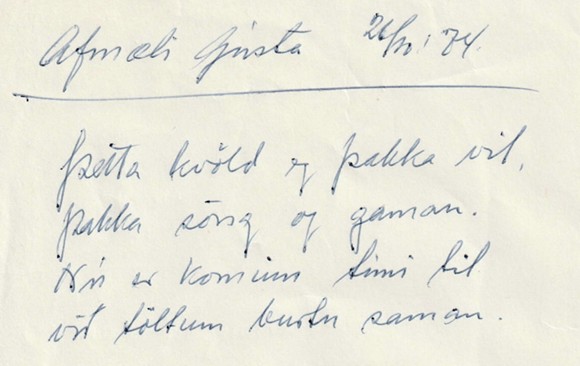 Afmæli Gústa 26/10 '74.
Þetta kvöld eg þakka vil,
þakka söng og gaman.
Nú er kominn tími til
við töltum burtu saman.